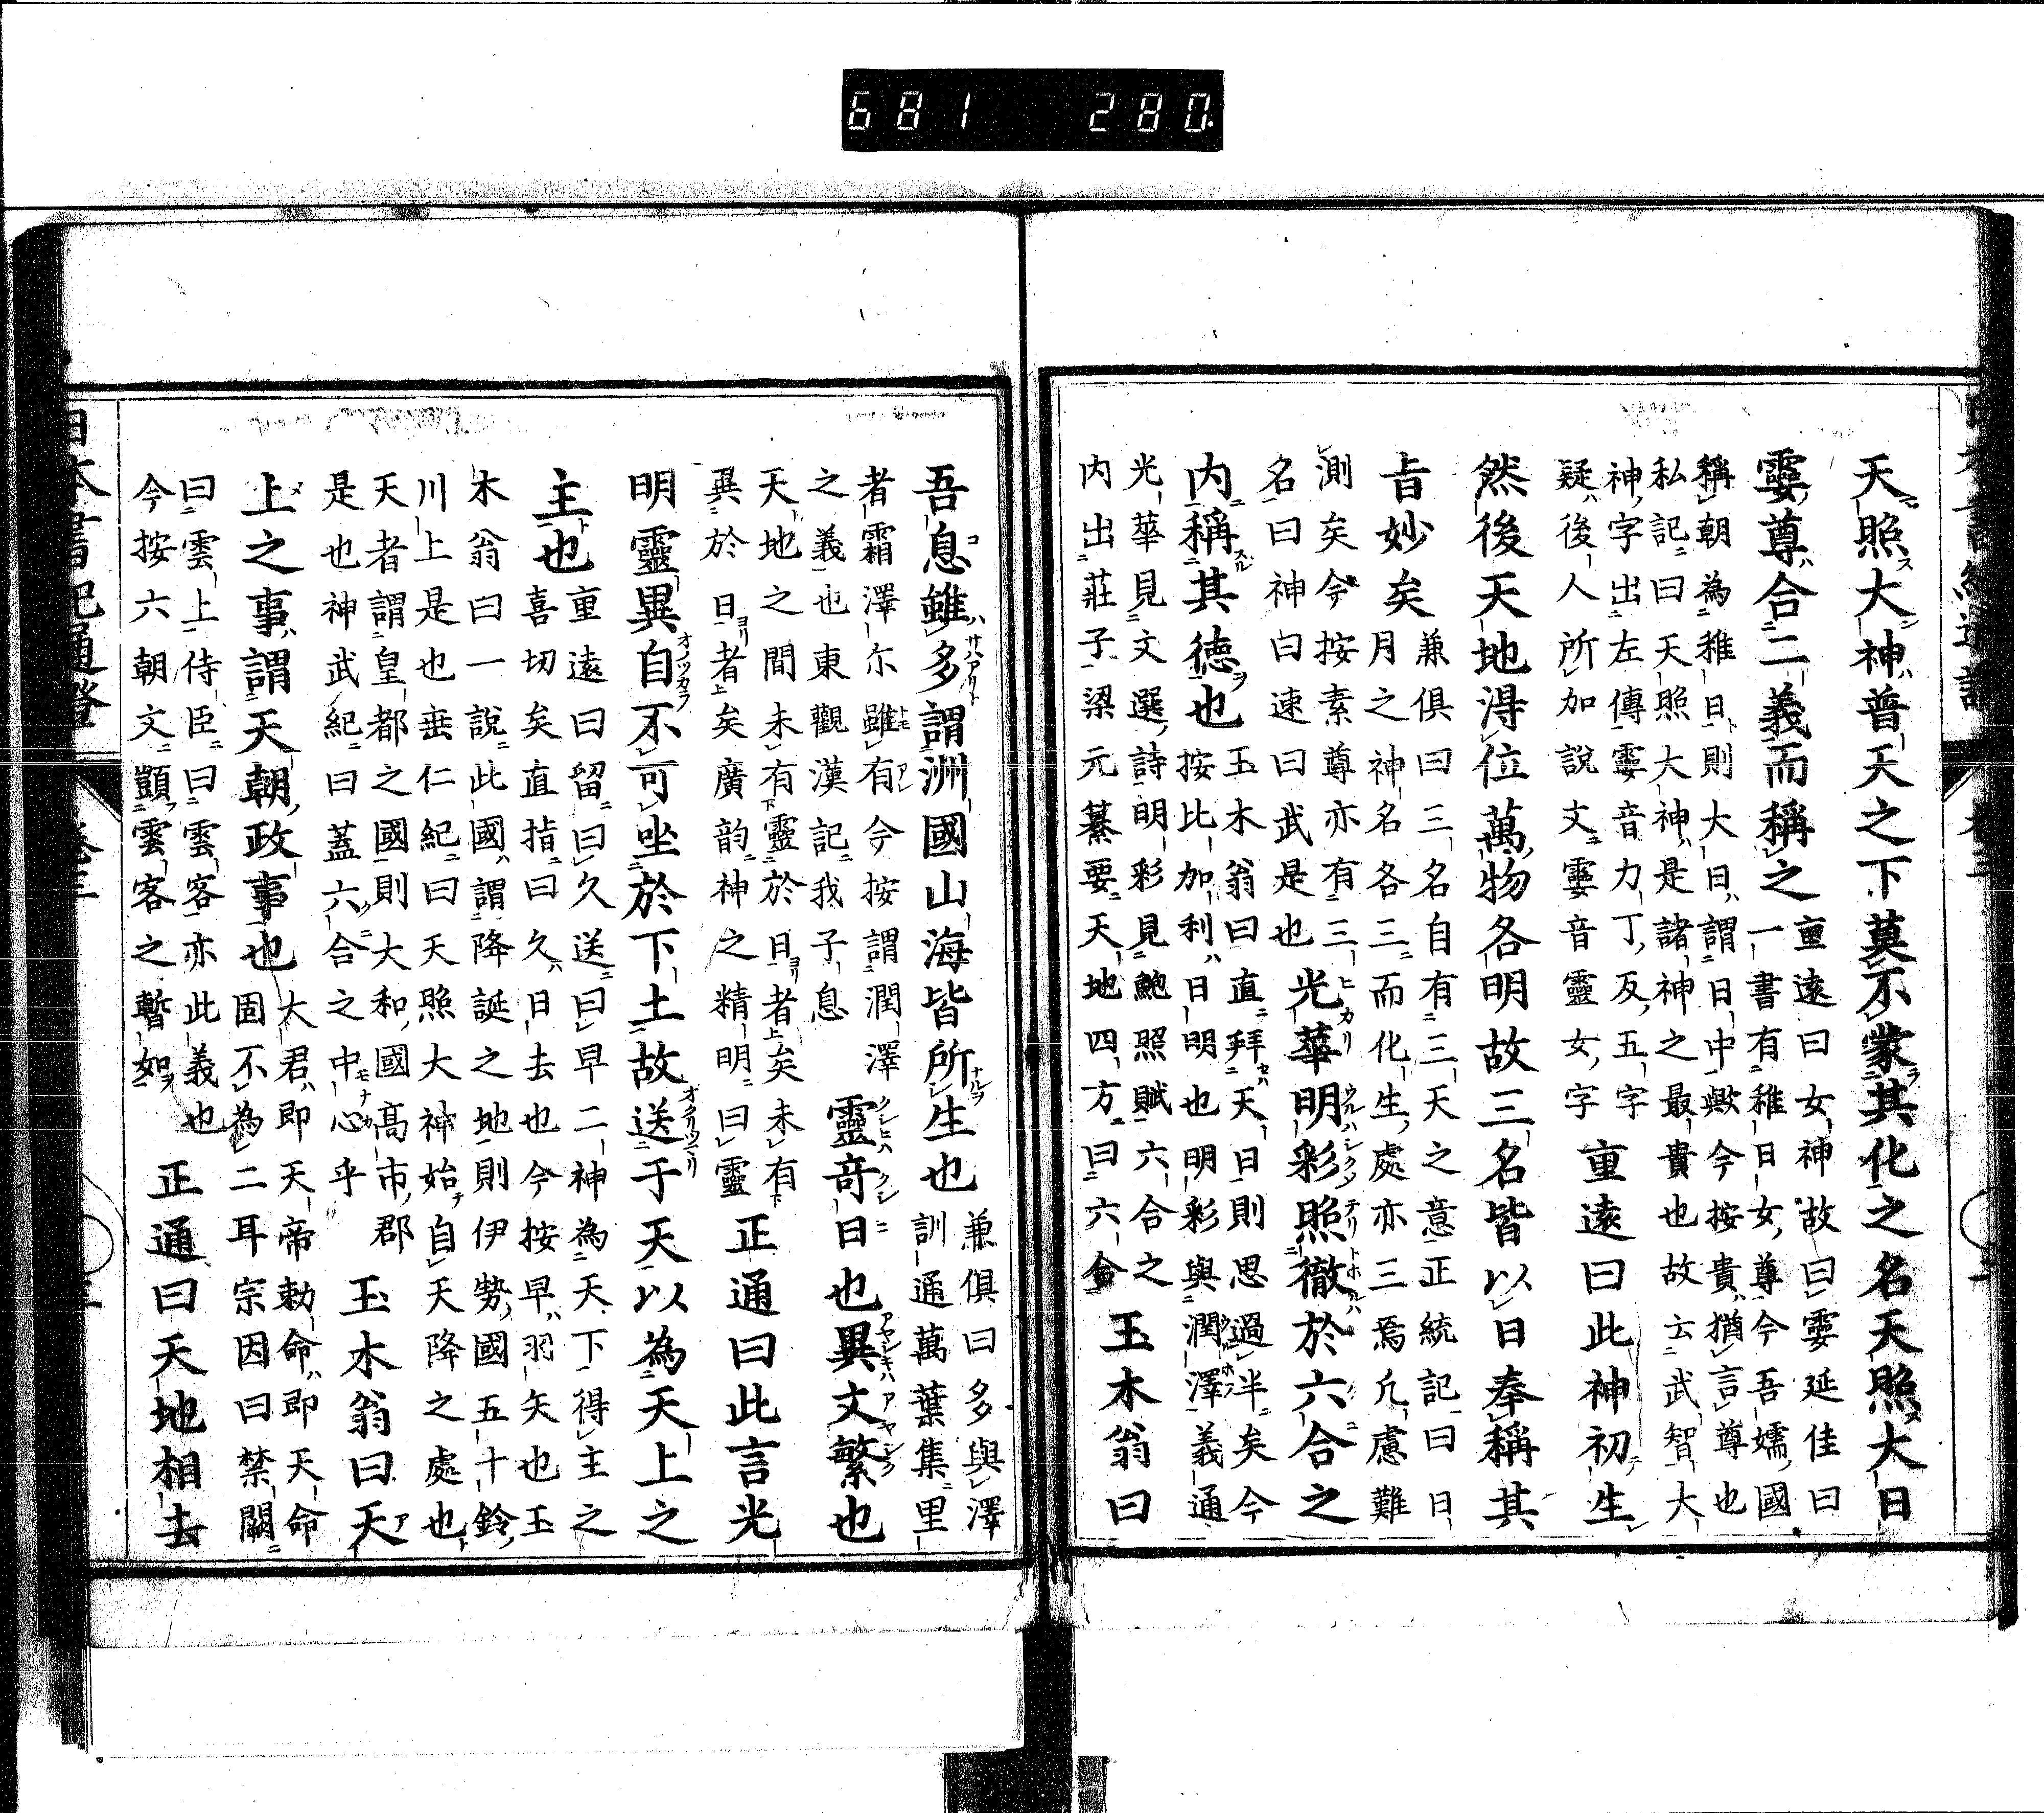 681 280
天照大神普天之下莫不蒙其化之名天照大日
孁尊合二義而稱之
重遠曰女神故曰孁延佳曰
一書有稚日女尊今吾嬬國
稱朝為稚日則大日謂日中歟今按貴猶言尊也
私記曰天照大神是諸神之最貴也故云武智大
神字出左傳孁音力丁反五字
疑後人所加說文孁音靈女字
重遠曰此神初生
然後天地得位萬物各明故三名皆以日奉稱其
㫖妙矣
兼俱曰三名自有三天之意正統記曰日
月之神名各三而化生處亦三焉凢慮難
測矣今按素尊亦有三
名曰神曰速曰武是也
光華明彩照徹於六合之
内稱其徳也
玉木翁曰直拜天日則思過半矣今
按比加利日明也明彩與潤澤義通
光華見文選詩明彩見鮑照賦六合之
内出莊子梁元纂要天地四方曰六合
玉木翁曰
吾息雖多謂洲國山海皆所生也
兼俱曰多與澤
訓通萬葉集里
者霜澤尓雖有今按謂潤澤
之義也東觀漢記我子息
靈竒日也異文繁也
天地之間未有靈於日者矣未有
異於日者矣廣韵神之精明曰靈
正通曰此言光
明靈異自不可坐於下土故送于天以為天上之
主也
重遠曰留曰久送曰早二神為天下得主之
喜切矣直指曰久日去也今按早羽矢也玉
木翁曰一說此國謂降誕之地則伊勢國五十鈴
川上是也垂仁紀曰天照大神始自天降之處也
天者謂皇都之國則大和國髙市郡
是也神武紀曰蓋六合之中心乎
玉木翁曰天
上之事謂天朝政事也
大君即天帝勅命即天命
固不為二耳宗因曰禁闕
曰雲上侍臣曰雲客亦此義也
今按六朝文顗雲客之暫如
正通曰天地相去
日本書紀通證